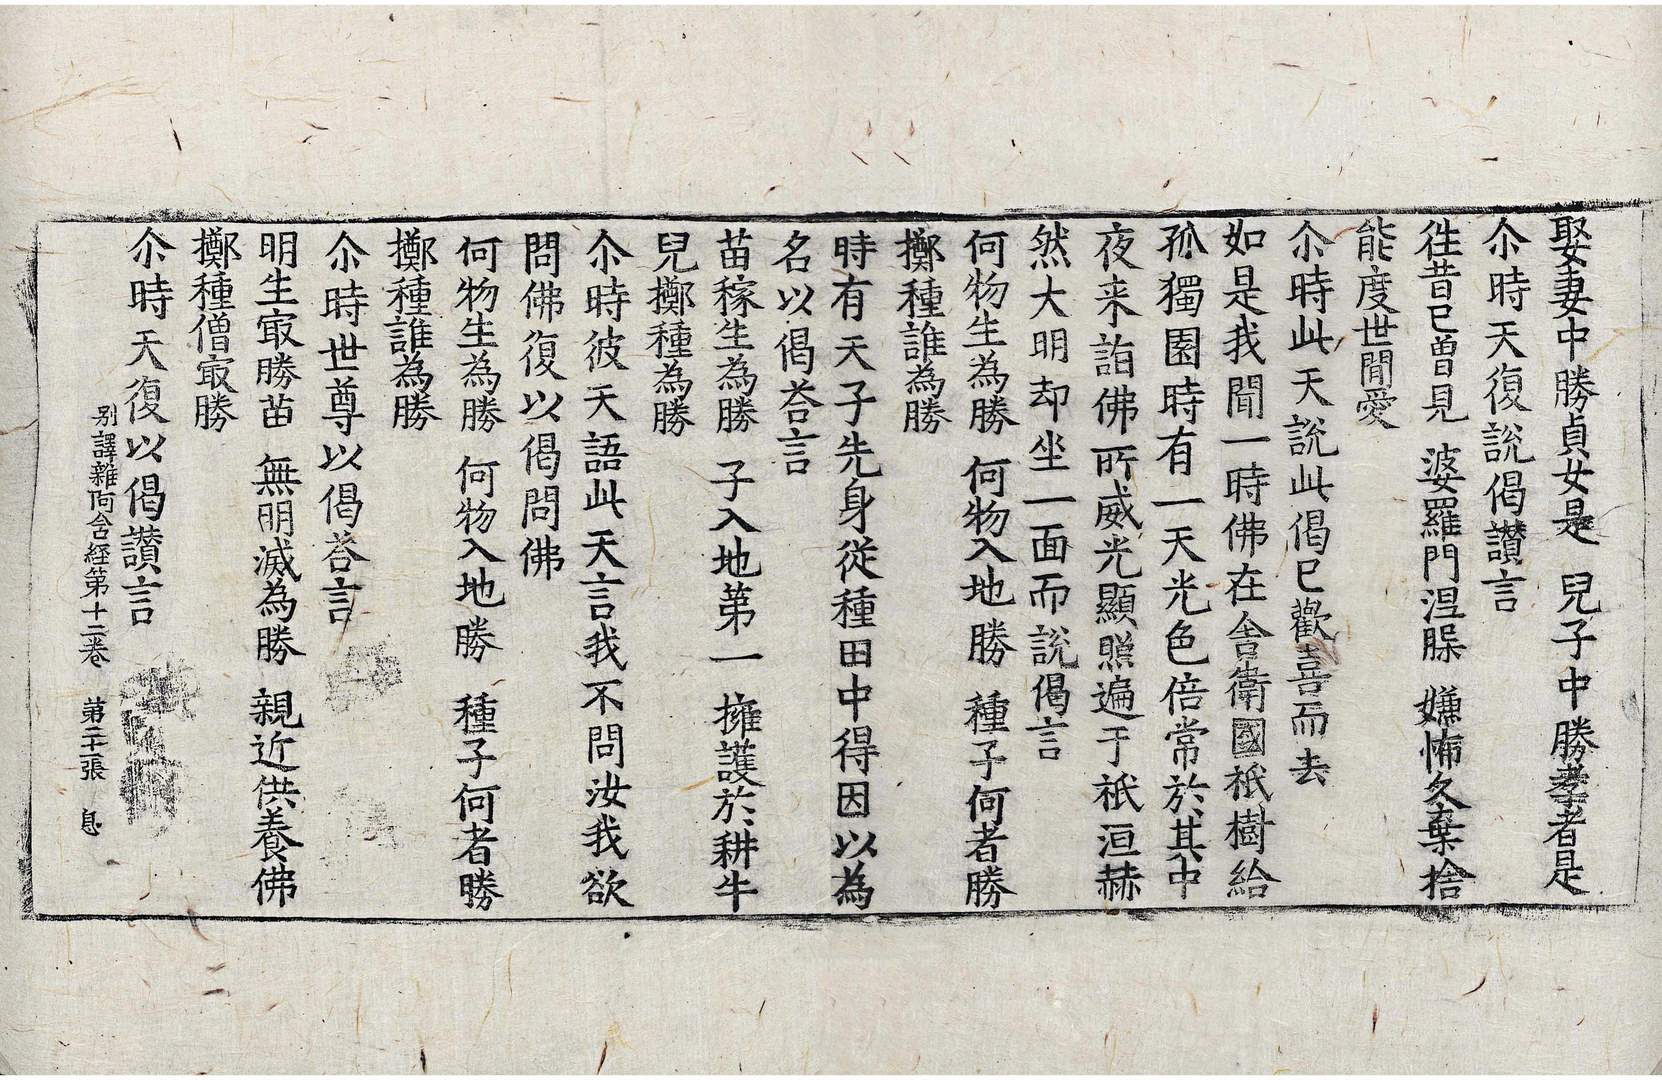 娶妻中勝貞女是　兒子中勝孝者是
尒時天復說偈讃言
徃昔已曾見　婆羅門涅槃　嫌怖久棄捨
能度世間愛
尒時此天說此偈已歡喜而去
如是我聞一時佛在舎衛國祇樹給
孤獨園時有一天光色倍常於其中
夜来詣佛所威光顯照遍于祇洹赫
然大明却坐一面而說偈言
何物生為勝　何物入地勝　種子何者勝
擲種誰為勝
時有天子先身從種田中得因以為
名以偈荅言
苗稼生為勝　子入地第一　擁護於耕牛
兒擲種為勝
尒時彼天語此天言我不問汝我欲
問佛復以偈問佛
何物生為勝　何物入地勝　種子何者勝
擲種誰為勝
尒時世尊以偈荅言
明生㝡勝苗　無明滅為勝　親近供養佛
擲種僧㝡勝
尒時天復以偈讃言
别譯雜阿含經第十二卷　第二十張　息